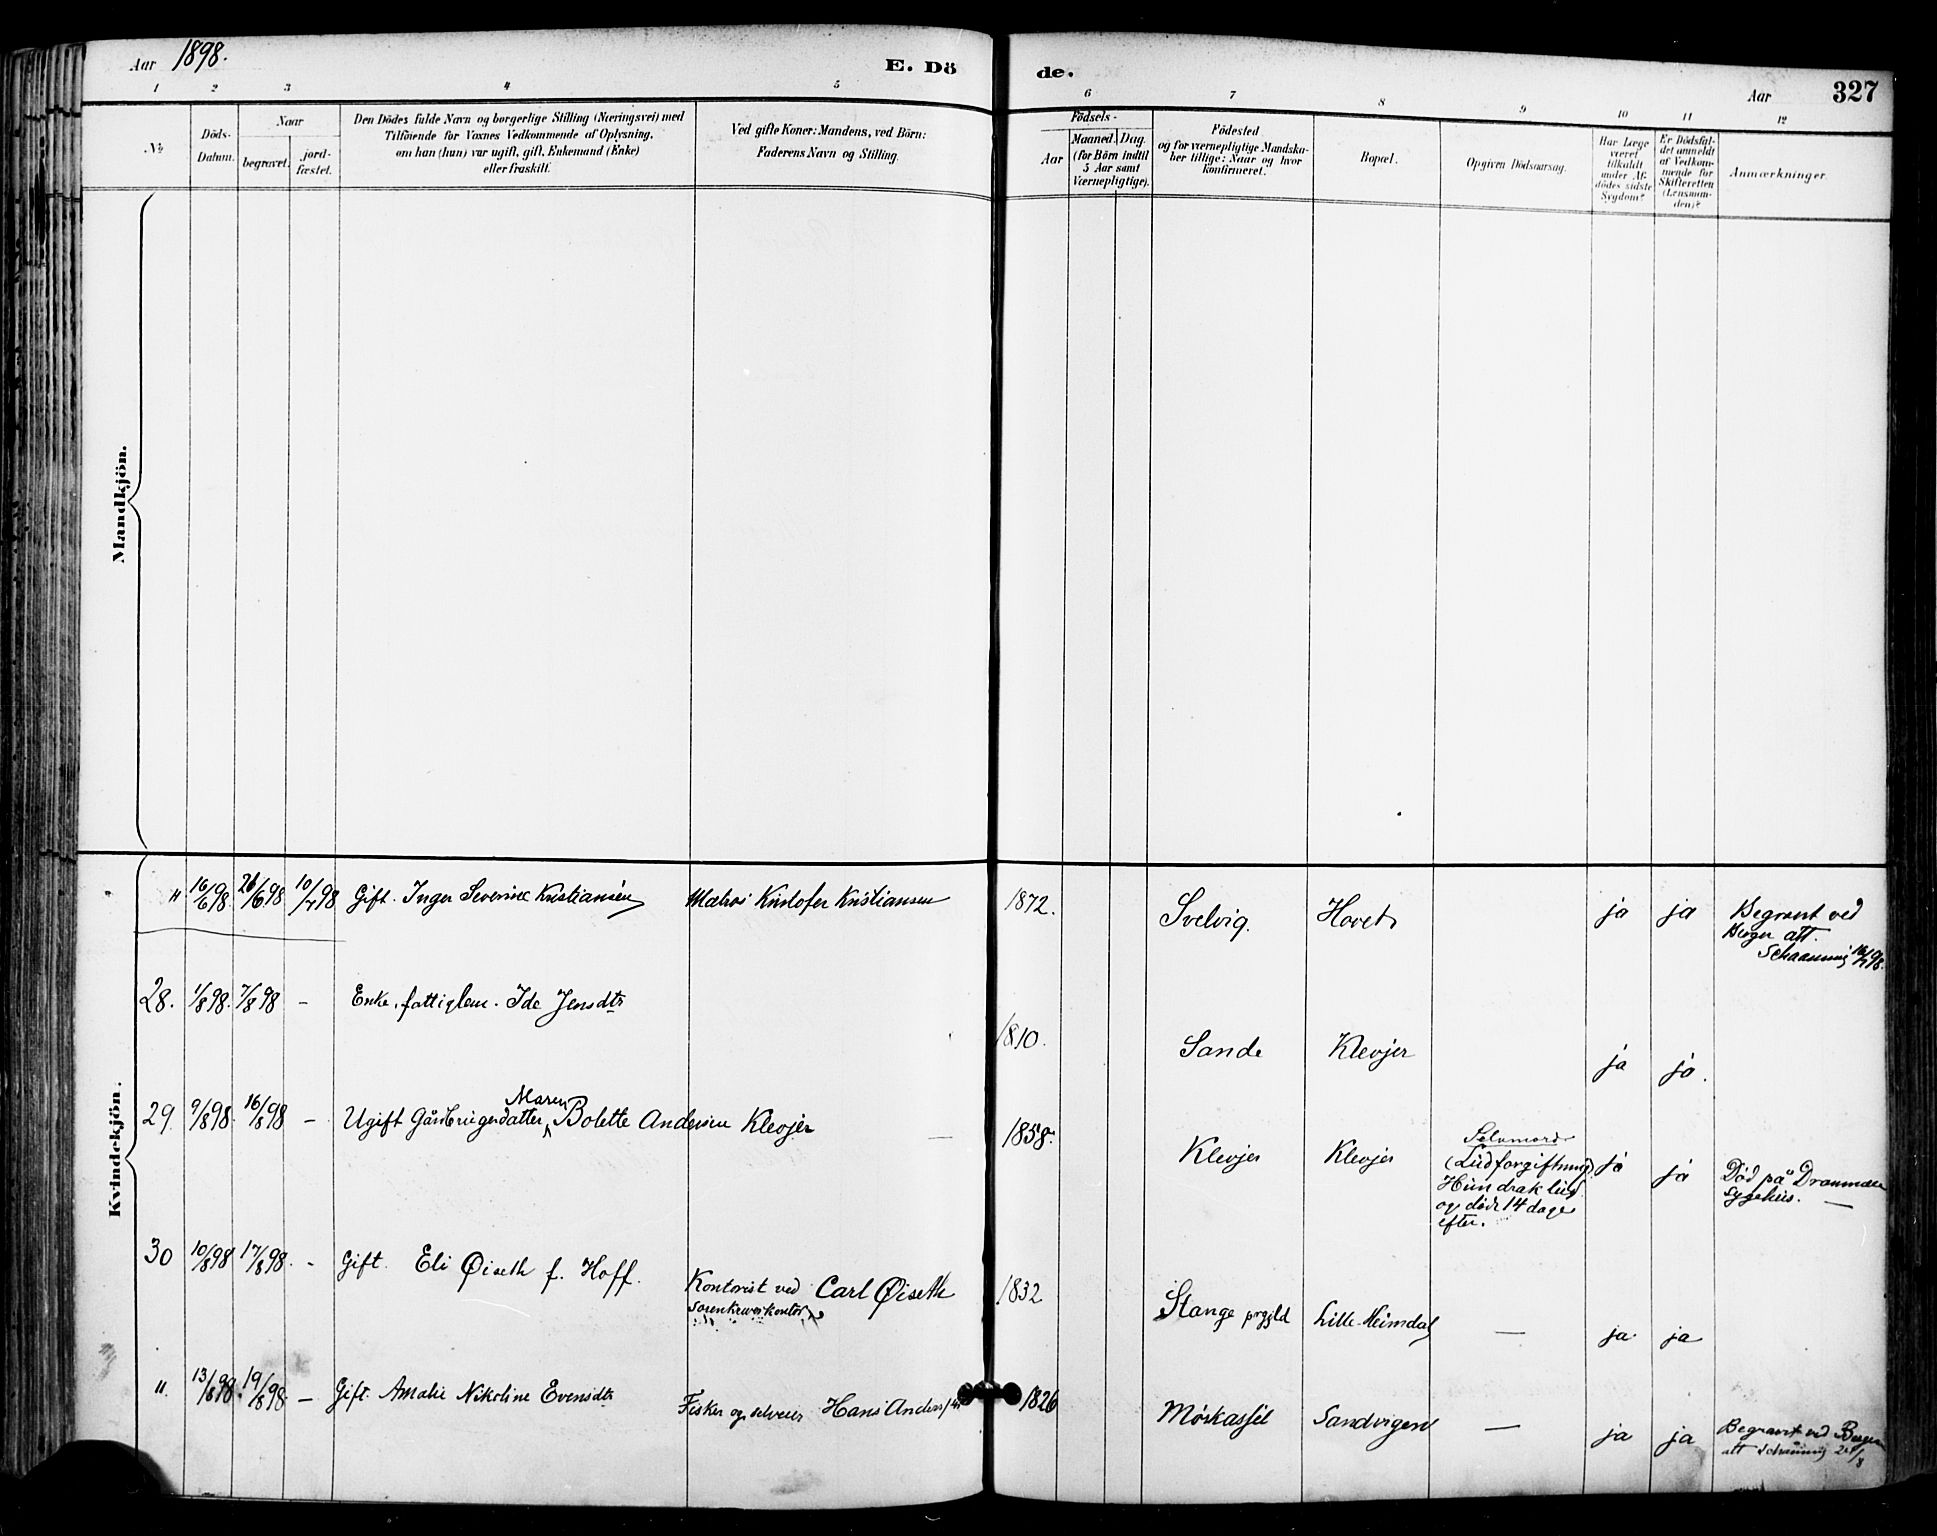 Aar 1898.
E. Dö
de.
Aar
327
1 2 3 4 5 6 7 8 9 10 11 12
№
Döds-
Datum.
Naar
begravet.
jord-
fæstet.
Den Dödes fulde Navn og borgerlige Stilling (Næringsvei) med
Tilföiende for Voxnes Vedkommende af Oplysning,
om han (hun) var ugift, gift, Enkemand (Enke)
eller fraskilt.
Ved gifte Koner: Mandens, ved Börn:
Faderens Navn og Stilling.
Födsels-
Aar
Maaned. Dag.
(for Börn indtil
5 Aar samt
Værnepligtige).
Födested
og for værnepligtige Mandska-
ber tillige: Naar og hvor
konfirmeret.
Bopæl.
Opgiven Dödsaarsag.
Har Læge
været
tilkaldt
under Af-
dödes sidste
Sygdom?
Er Dödsfal-
det anmeldt
af Vedkom-
mende for
Skifteretten
(Lensman-
den)?
Anmærkninger.
Mandkjön.
Kvindekjön.
" 16/6 98. 26/6 98 10/7 98 Gift. Inger Severine Kristiansen Matros Kristofer Kristiansen 1872. Svelvig. Hovet ja ja Begravet ved
Berger att.
Schaanning
28. 1/8 98. 7/8 98 – Enke, fattiglem. Ide Jensdtr 1810. Sande Klevjer ja ja.
29. 9/8 98. 16/8 98 – Ugift Gårdbrugerdatter Maren Bolette Andersine Klevjer — 1858. Klevjer Klevjer Selvmord
(Ludforgiftning)
Hun drak lud
og døde 14 dage
efter.
ja ja Død på Drammens
sygehus. —
30 10/8 98 17/8 98. - Gift. Eli Øiseth f. Hoff. Kontorist ved Carl Øiseth
Sorenkriverkontor
1832 Stange prgjld Lille-Heimdal — ja. ja
" 13/8 98. 19/8 98 – Gift. Amalie Nikoline Evensdtr Fisker og selveier Hans Anders/ 1826 Sandvigen — ja ja Begravet ved Berger
att Schanning